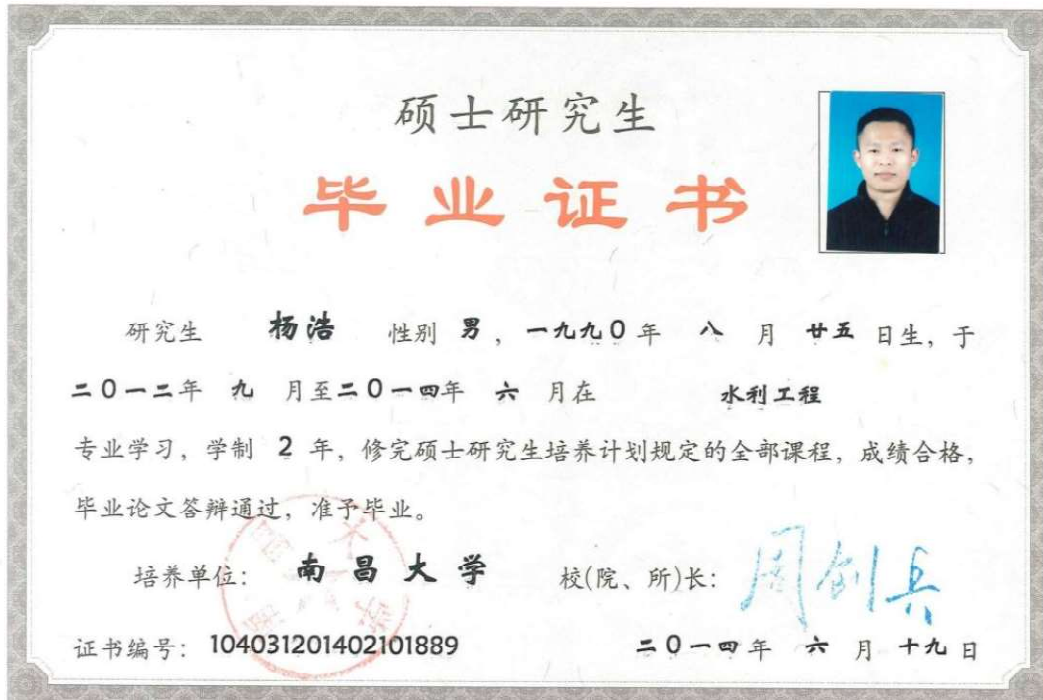 硕士研究生
毕业证书
研究生 杨浩 性别 男，一九九〇年 八 月 廿五 日生，于
二〇一二年 九 月至二〇一四年 六 月在 水利工程
专业学习，学制 2 年，修完硕士研究生培养计划规定的全部课程，成绩合格，
毕业论文答辩通过，准予毕业。
培养单位：南昌大学 校(院、所)长：周创兵
证书编号：104031201402101889 二〇一四年 六 月 十九 日